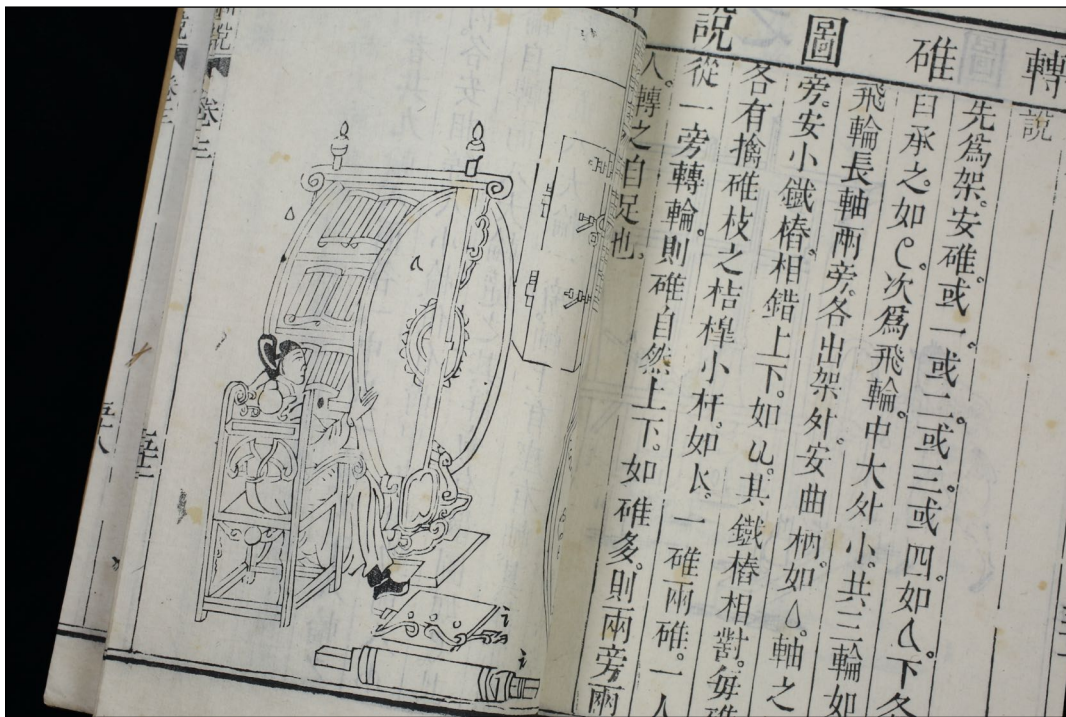 轉碓圖說
說
先為架。安碓。或一或二。或三或四。如。下各
曰承之。如。次為飛輪。中大外小。共三輪如
飛輪長軸兩旁。各出架外。安曲柄。如。軸之
旁。安小鐵樁。相錯上下。如。其鐵樁相對。每碓
各有擒碓枝之桔槔小杆。如。一碓兩碓。一人
從一旁轉輪。則碓自然上下。如碓多。則兩旁兩
人。轉之自足也。
說 卷三